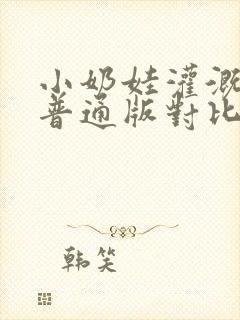 小奶娃灌溉
普通版對比
韩笑